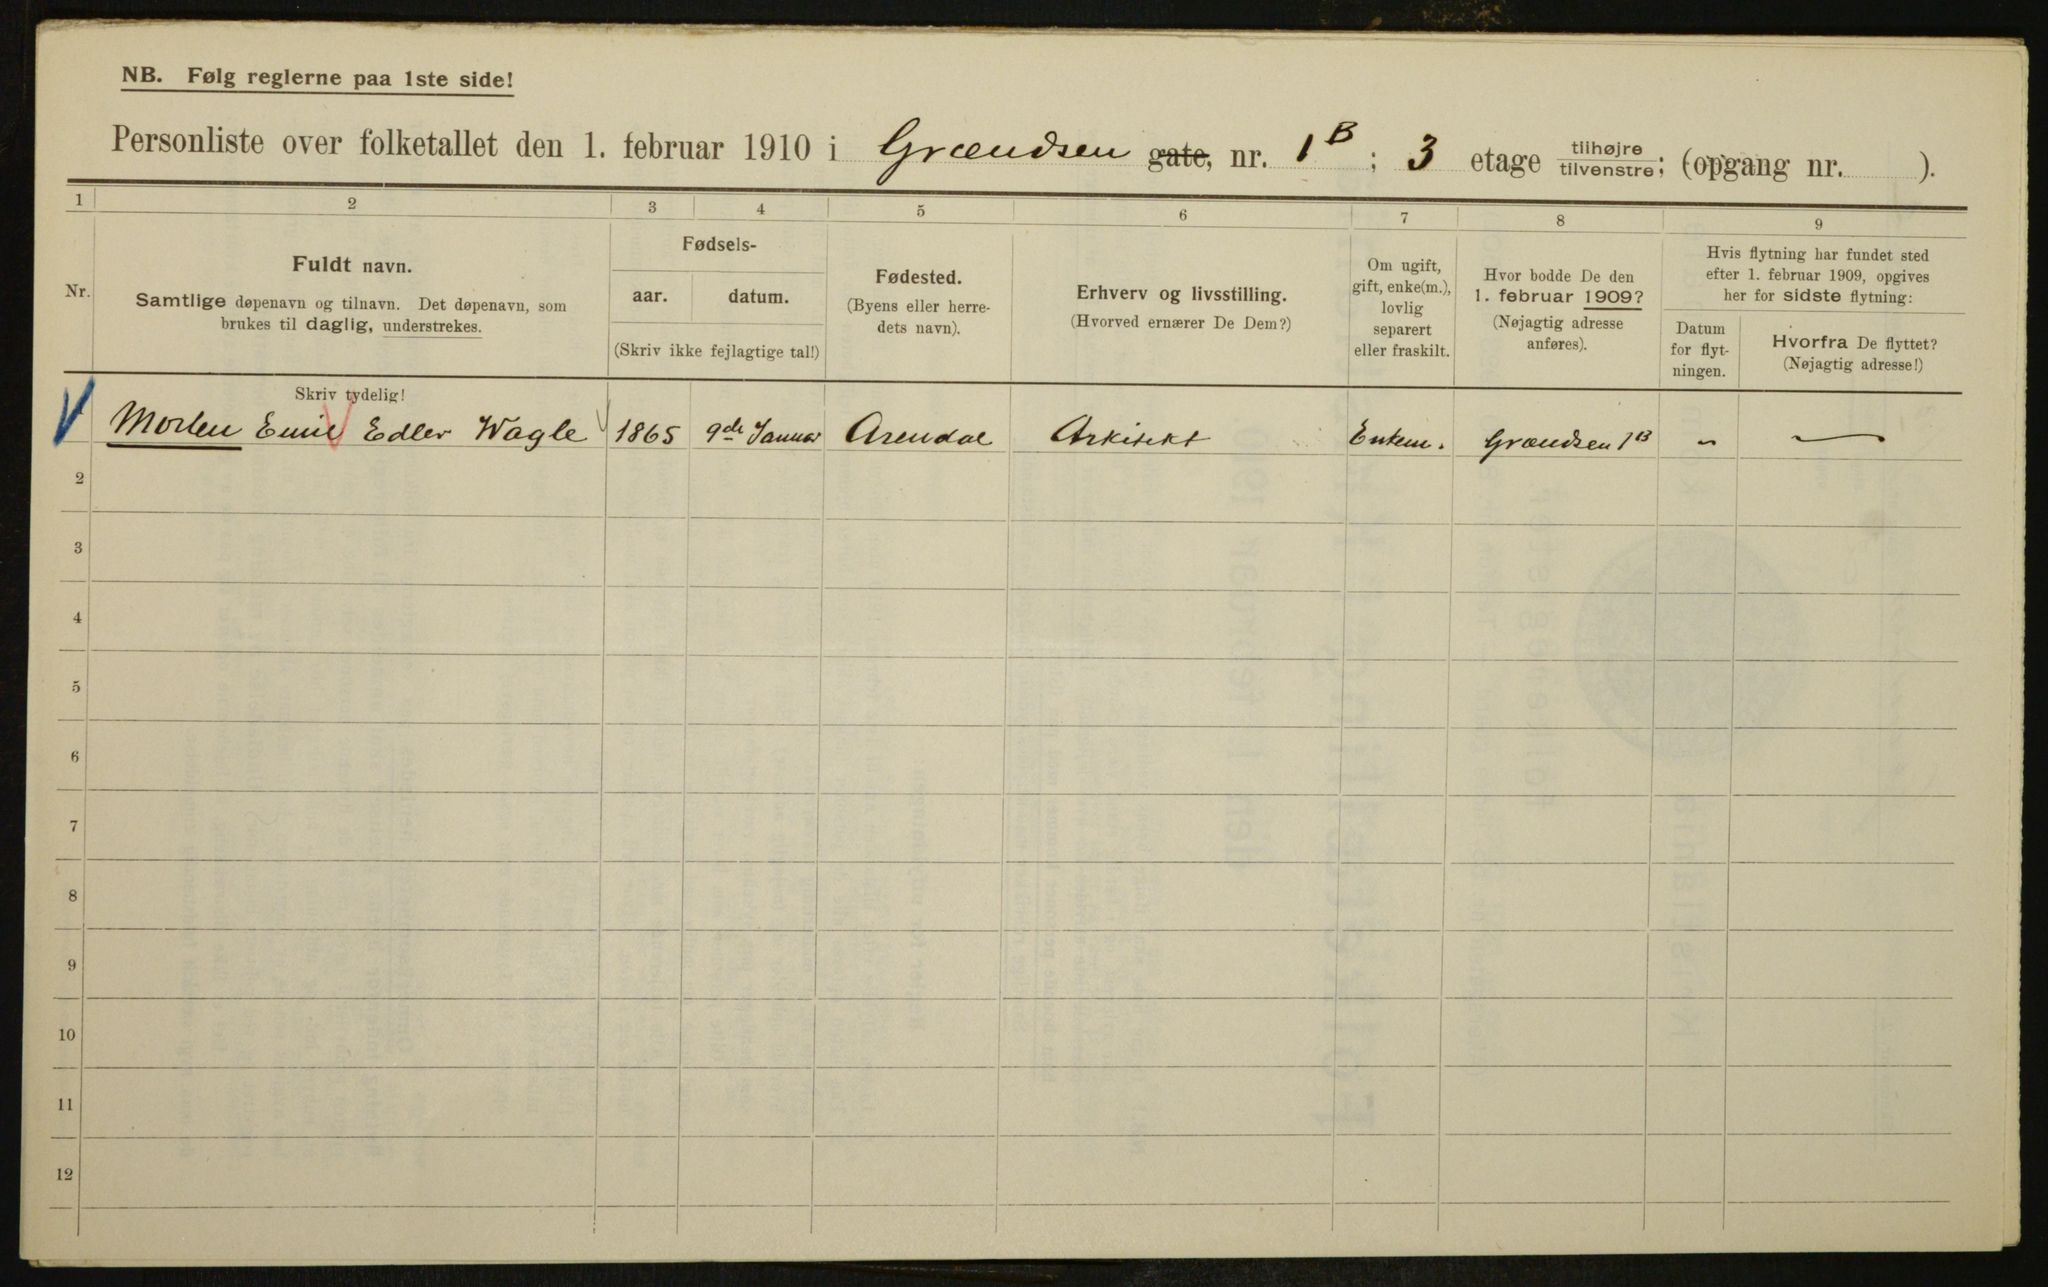 NB. Følg reglerne paa 1ste side!
Personliste over folketallet den 1. februar 1910 i Grændsen gate, nr. 1B; 3 etage tilhøjre/tilvenstre; (opgang nr. ).
1 2 3 4 5 6 7 8 9
Nr.
Fuldt navn.
Samtlige døpenavn og tilnavn. Det døpenavn, som
brukes til daglig, understrekes.
Skriv tydelig!
Fødsels-
aar. datum.
(Skriv ikke fejlagtige tal!)
Fødested.
(Byens eller herre-
dets navn).
Erhverv og livsstilling.
(Hvorved ernærer De Dem?)
Om ugift,
gift, enke(m.),
lovlig
separert
eller fraskilt.
Hvor bodde De den
1. februar 1909?
(Nøjagtig adresse
anføres).
Hvis flytning har fundet sted
efter 1. februar 1909, opgives
her for sidste flytning:
Datum
for flyt-
ningen.
Hvorfra De flyttet?
(Nøjagtig adresse!)
Morten Emil Edler Wagle 1865 9de Januar Arendal Arkitekt Enkem. Grændsen 1B
2
3
4
5
6
7
8
9
10
11
12